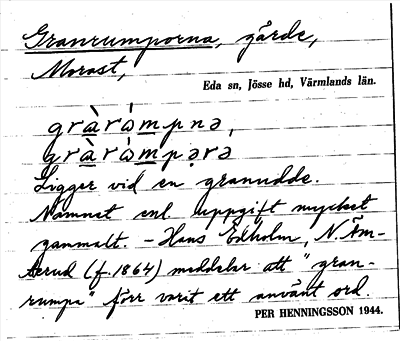 Granrumporna, gärde,
Morast,
Eda sn, Jösse hd, Värmlands län.
gràrómpnə,
gràrómpərə
Ligger vid en granudde.
Namnet enl. uppgift mycket
gammalt. – Hans Ekholm, N. Äm-
terud (f. 1864) meddelar att "gran-
rumpa" förr varit ett använt ord
PER HENNINGSSON 1944.